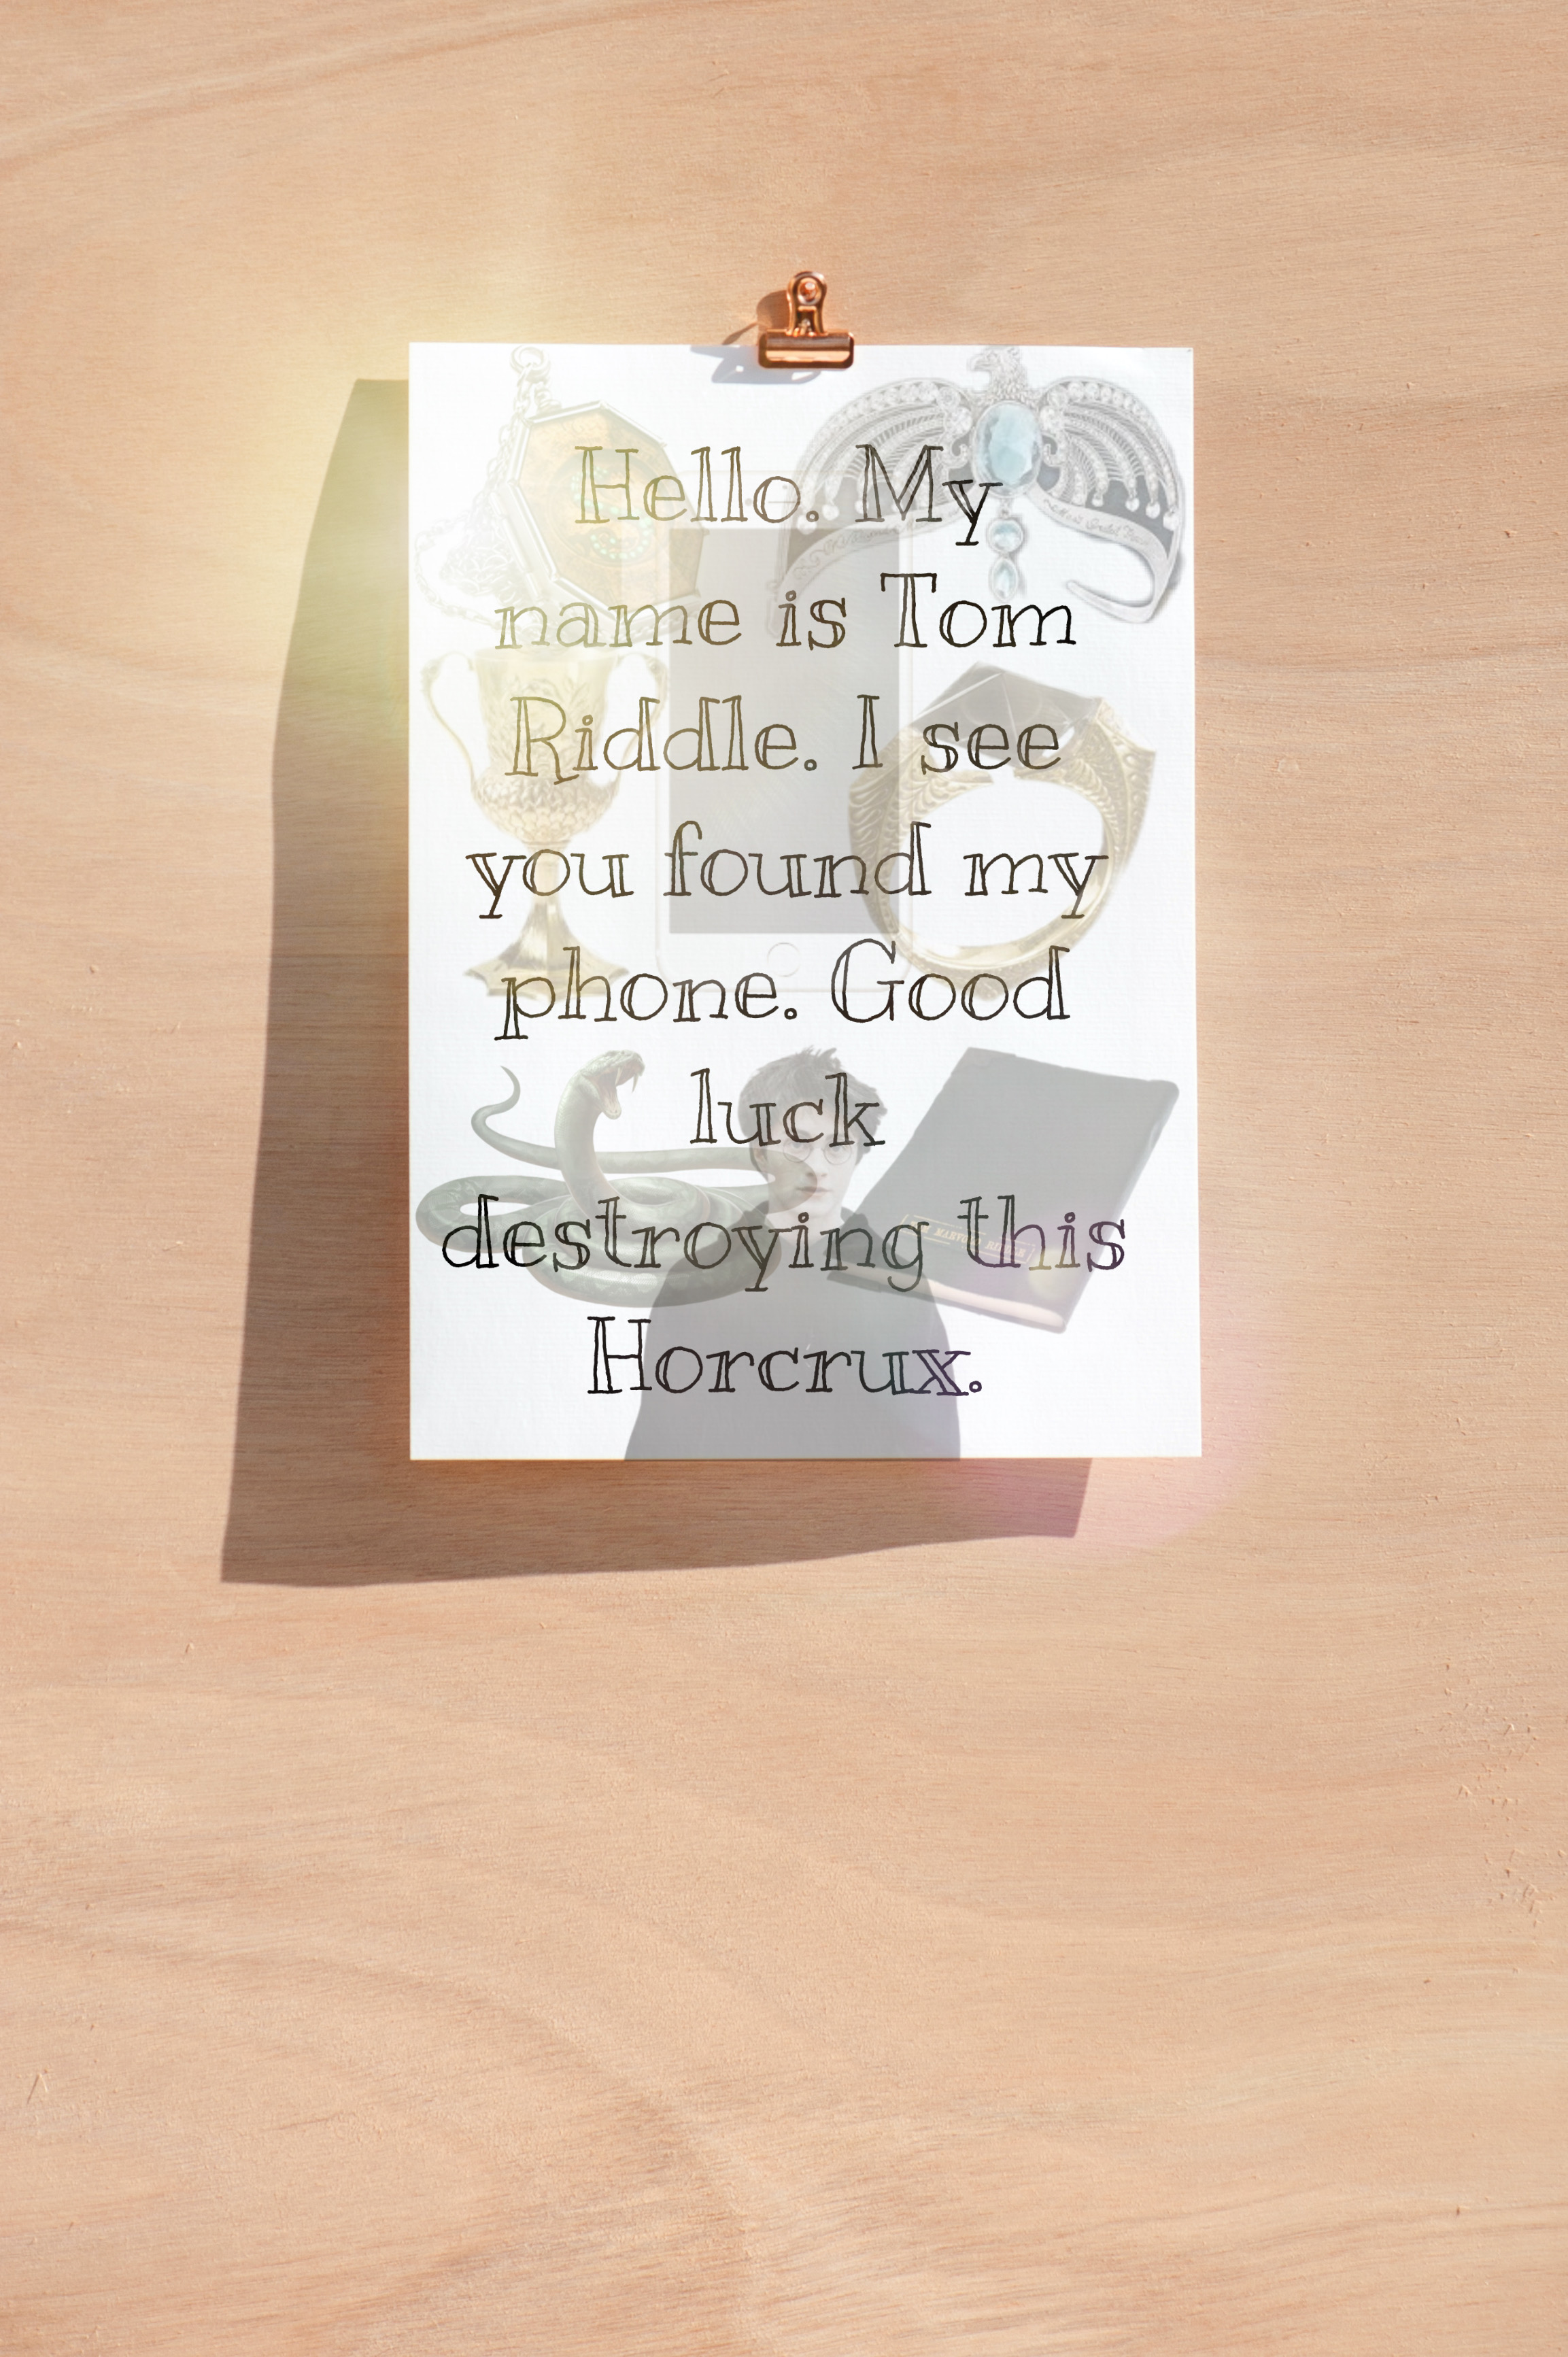 Hello. My
name is Tom
Riddle. I see
you found my
phone. Good
luck
destroying this
Horcrux.